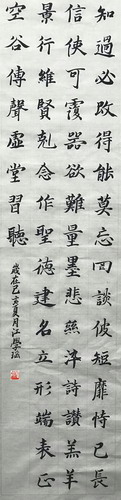 知過必改得能莫忘罔談彼短靡恃己長
信使可覆器欲難量墨悲絲染詩讚羔羊
景行維賢克念作聖德建名立形端表正
空谷傳聲虛堂習聽
歲在乙亥夏月江學